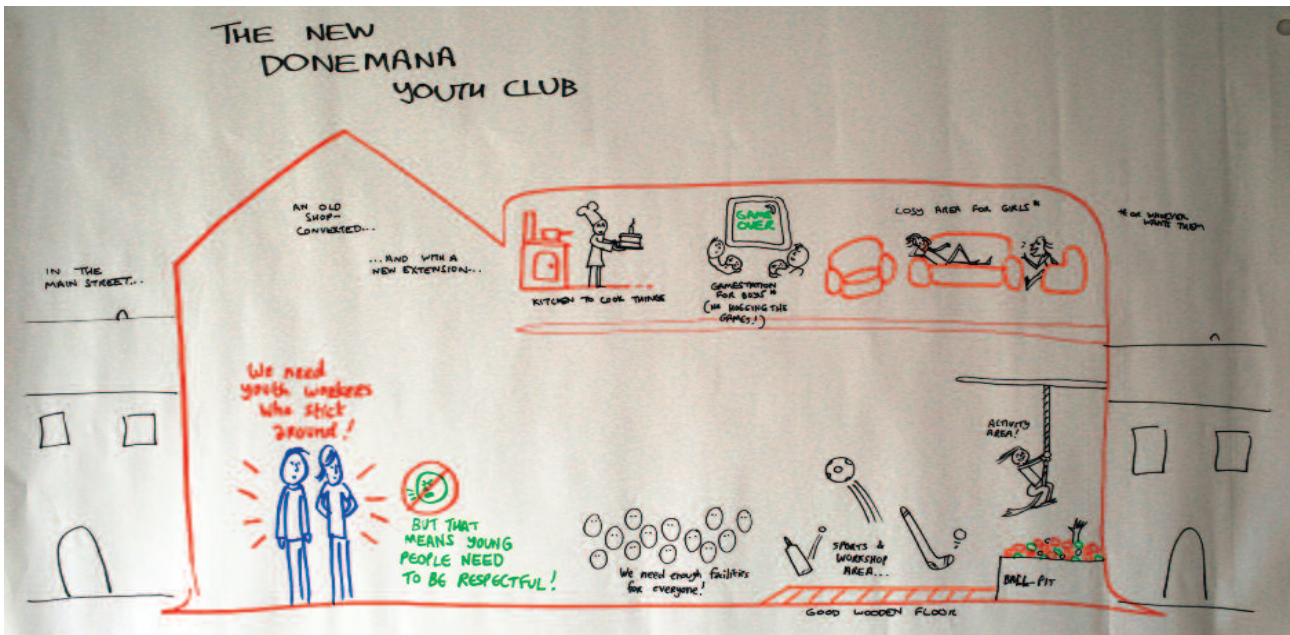 THE NEW
DONEMANA
YOUTH CLUB
AN OLD
SHOP-
CONVERTED...
...AND WITH A
NEW EXTENSION...
IN THE
MAIN STREET...
KITCHEN TO COOK THINGS
GAME
OVER
GAMESTATION
FOR BOYS*
(NO HOGGING THE
GAMES!)
COSY AREA FOR GIRLS*
*OR WHOEVER
WANTS THEM
We need
youth workers
who stick
around!
BUT THAT
MEANS YOUNG
PEOPLE NEED
TO BE RESPECTFUL!
We need enough facilities
for everyone!
SPORTS &
WORKSHOP
AREA...
ACTIVITY
AREA!
BALL-PIT
GOOD WOODEN FLOOR